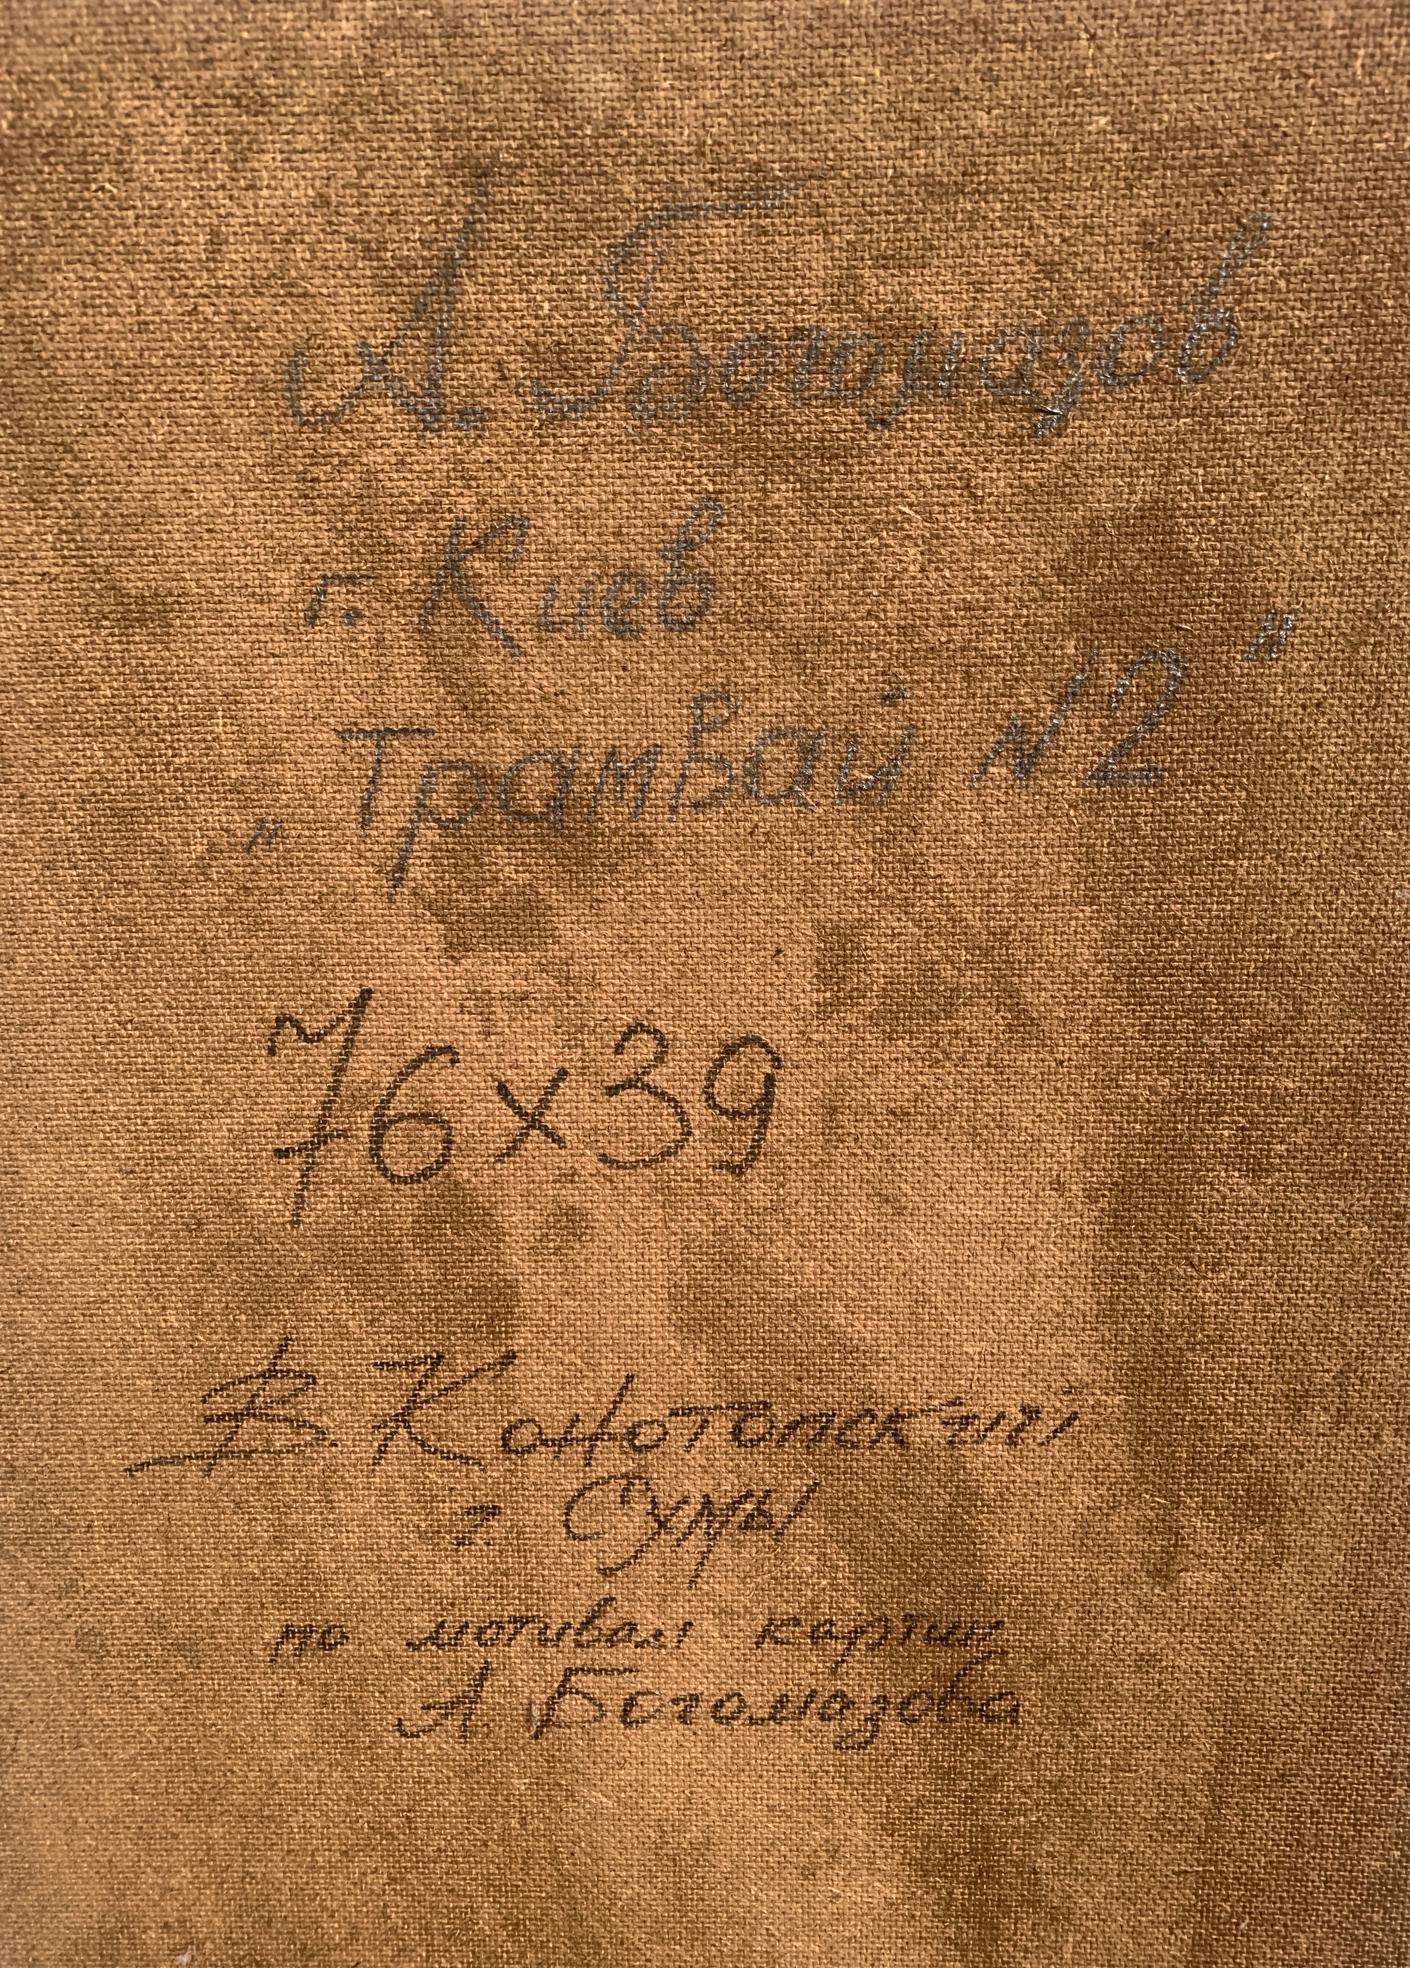 А. Богомазов
г. Киев
„Трамвай N2"
76x39
В. Конотопский
г. Сумы
по мотивам картин
А. Богомазова